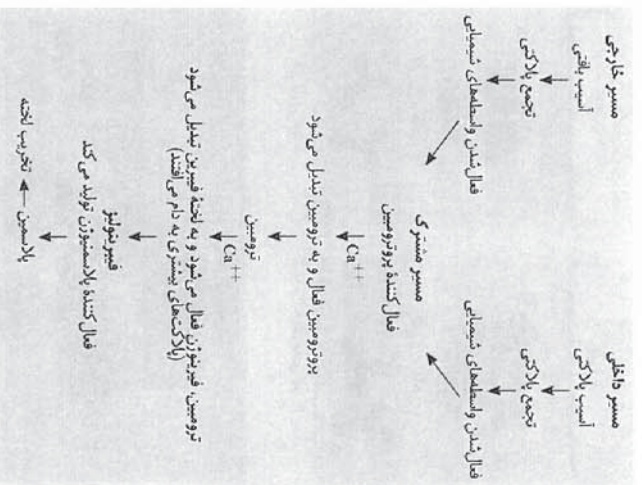 مسیر خارجی
آسیب بافتی
تجمع پلاکتی
فعال‌شدن واسطه‌های شیمیایی
مسیر داخلی
آسیب پلاکتی
تجمع پلاکتی
فعال‌شدن واسطه‌های شیمیایی
مسیر مشترک
فعال‌کنندهٔ پروترومبین
Ca++
پروترومبین فعال و به ترومبین تبدیل می‌شود
ترومبین
Ca++
ترومبین، فیبرینوژن فعال می‌شود و به لختهٔ فیبرین تبدیل می‌شود
(پلاکت‌های بیشتری به دام می‌افتند)
فیبرینولیز
فعال‌کنندهٔ پلاسمنیوژن تولید می‌کند
پلاسمین ← تخریب لخته